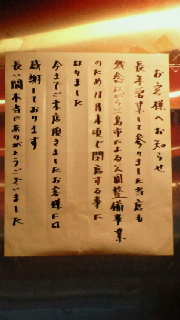 お客様へお知らせ
長年営業して参りました当店も
残念ながら広島市による公園整備事業
のため11月末頃で閉店する事に
なりました
今までご来店頂きましたお客様には
感謝しております
長い間本当にありがとうございました